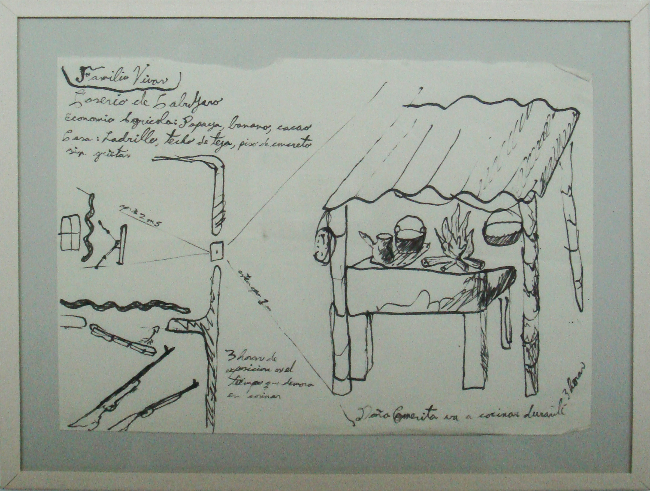 Familia Vivar
Caserio de
Economia Agricola: Papaya, banano, cacao
Casa: Ladrillo, techo de teja, piso de concreto
sin grietas
3 horas de
exposicion en el
tiempo que demora
en cocinar
Doña va a cocinar durante 3 horas